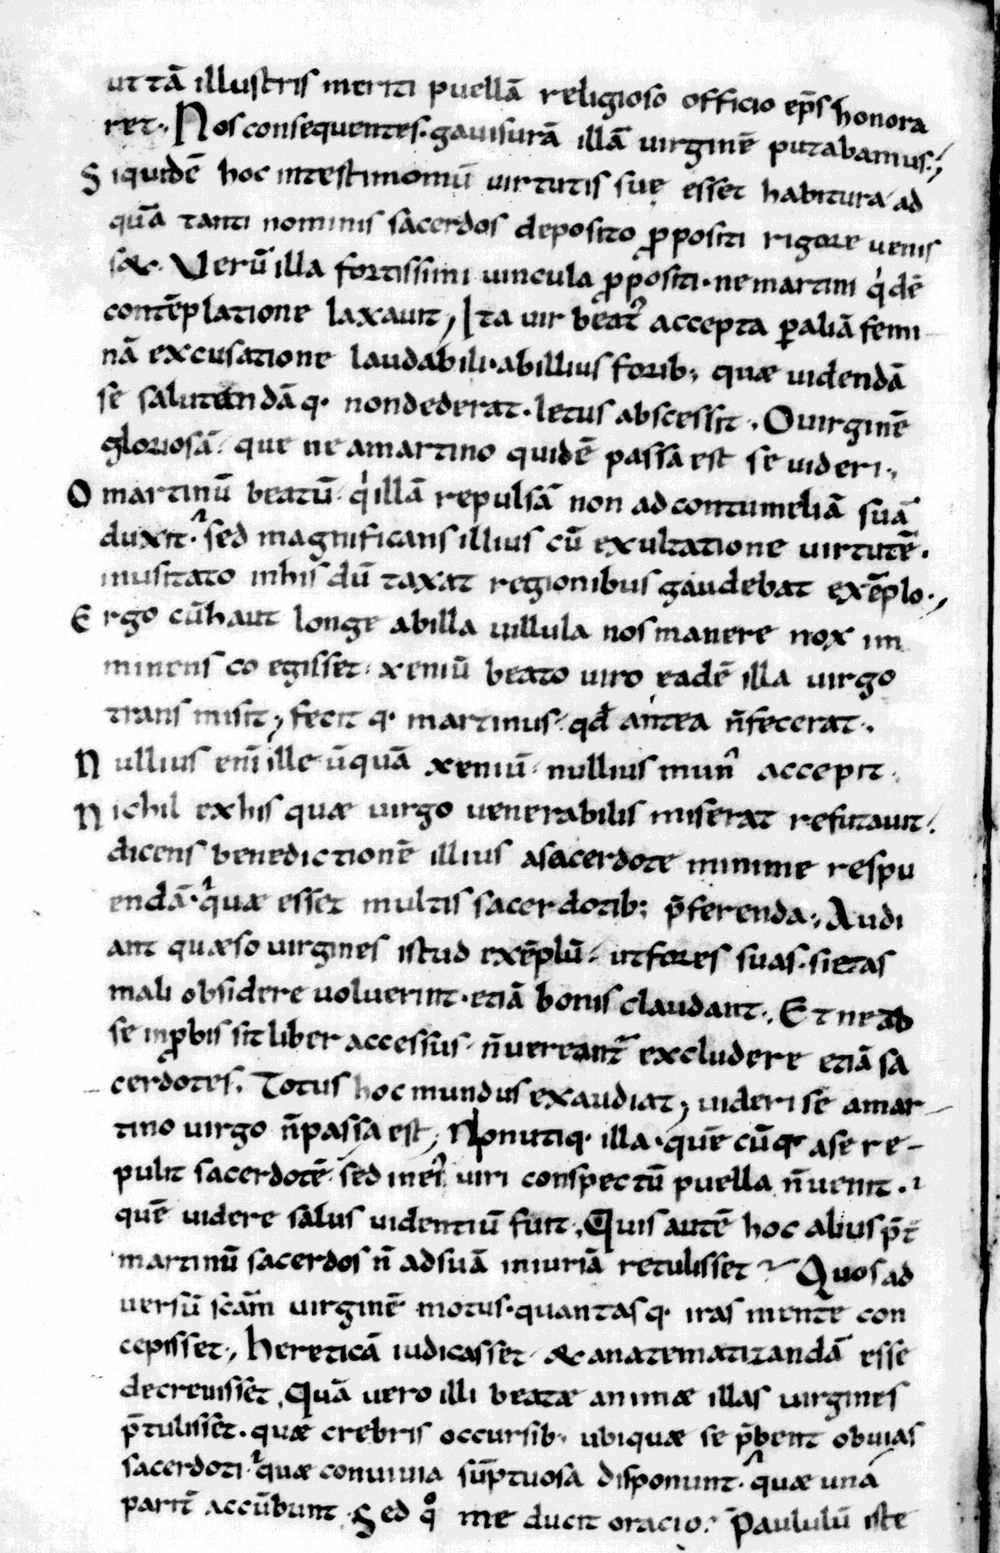 ut tā illustris meriti puellā religioso officio ep̄s honora
ret. Nos consequentes. gauisurā illā uirginē putabamus.;
Siquidē hoc intestimoniū uirtutis suę esset habitura. ad
quā tanti nominis sacerdos deposito ꝓpositi rigore uenis
s&. Verū illa fortissimi uincula ꝓpositi. ne martini qⁱdē
contēplatione laxauit; Ita uir beatꝰ accepta ꝑ aliā femi
nā excusatione laudabili. abillius forib; quæ uidendā
se salutandā q· nondederat. letus abscessit. O uirginē
gloriosā. que ne amartino quidē passa est se uideri.,
O martinū beatū. qⁱ illā repulsā non adcontumeliā suā
duxit. sed magnificans illius cū exultatione uirtutē.
inusitato inhis dū taxat regionibus gaudebat exēplo.,
Ergo cū haut longe abilla uillula nos manere nox im
minens co egisset. xeniū beato uiro eadē illa uirgo
trans misit; fecit q· martinus. qd̄ antea n̄fecerat.
Nullius eni ille ūquā xeniū. nullius mun̄ accepit.
Nichil exhis quæ uirgo uenerabilis miserat refutauit.
dicens benedictionē illius asacerdote minime respu
endā. quæ esset multis sacerdotib; p̄ferenda., Audi
ant quæso uirgines istud exēplū. utfores suas. sietas
mali obsidere uoluerint. etiā bonis claudant., Et ne ab
se inꝓbis sit liber accessus. n̄uereant̄ excludere etiā sa
cerdotes. Totus hoc mundus exaudiat; uideri se amar
tino uirgo n̄passa est; Nonutiq· illa. quē cūq· ase re-
pulit sacerdotē. sed ineiꝰ uiri conspectū puella n̄uenit.
quē uidere salus uidentiū fuit. Quis autē hoc alius p̄t̄
martinū sacerdos n̄ adsuā iniuriā retulisset? Quos ad
uersū scām uirginē motus. quantas q· iras mente con
cepisset., hereticā iudicasset. &anatematizandā esse
decreuisset. Quā uero illi beatæ animæ illas uirgines
p̄tulisset. quæ crebris occursib; ubiquæ se p̄bent obuias
sacerdoti. quæ conuiuia sūptuosa disponunt. quæ una
parit̄ accūbunt. Sed qͦ me ducit oracio? Paululū iste